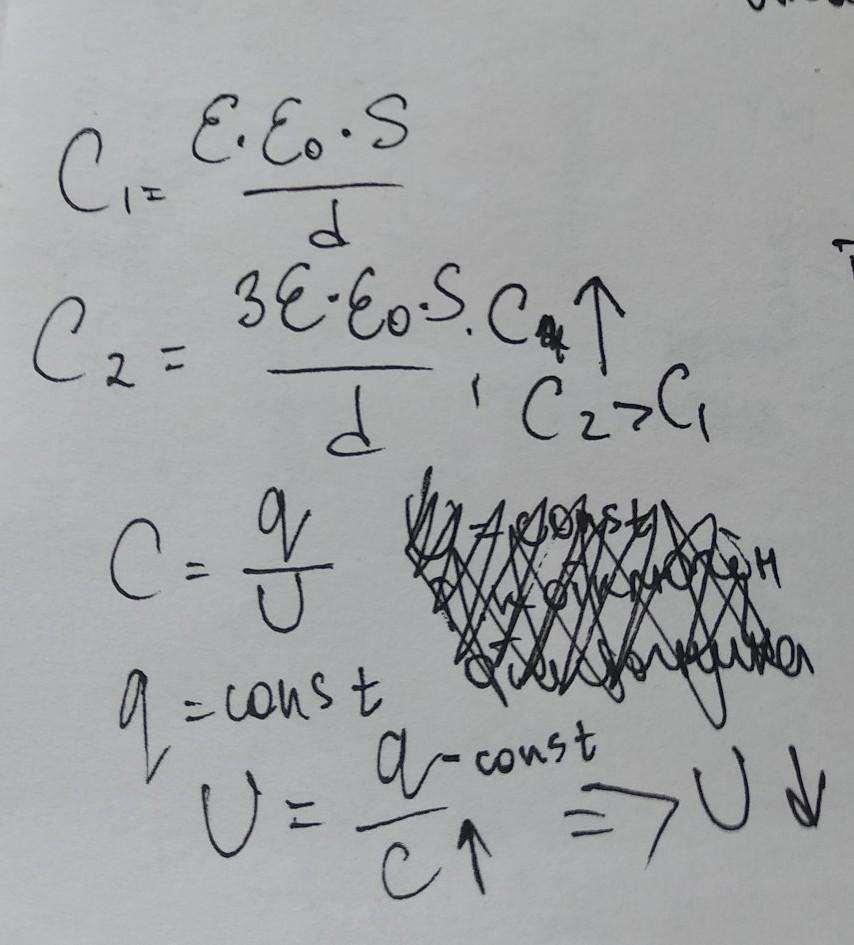 C₁ = ε·ε₀·S / d
C₂ = 3ε·ε₀·S / d ; C ↑
C₂ > C₁
C = q / U
q = const
U = q - const / C ↑ => U ↓